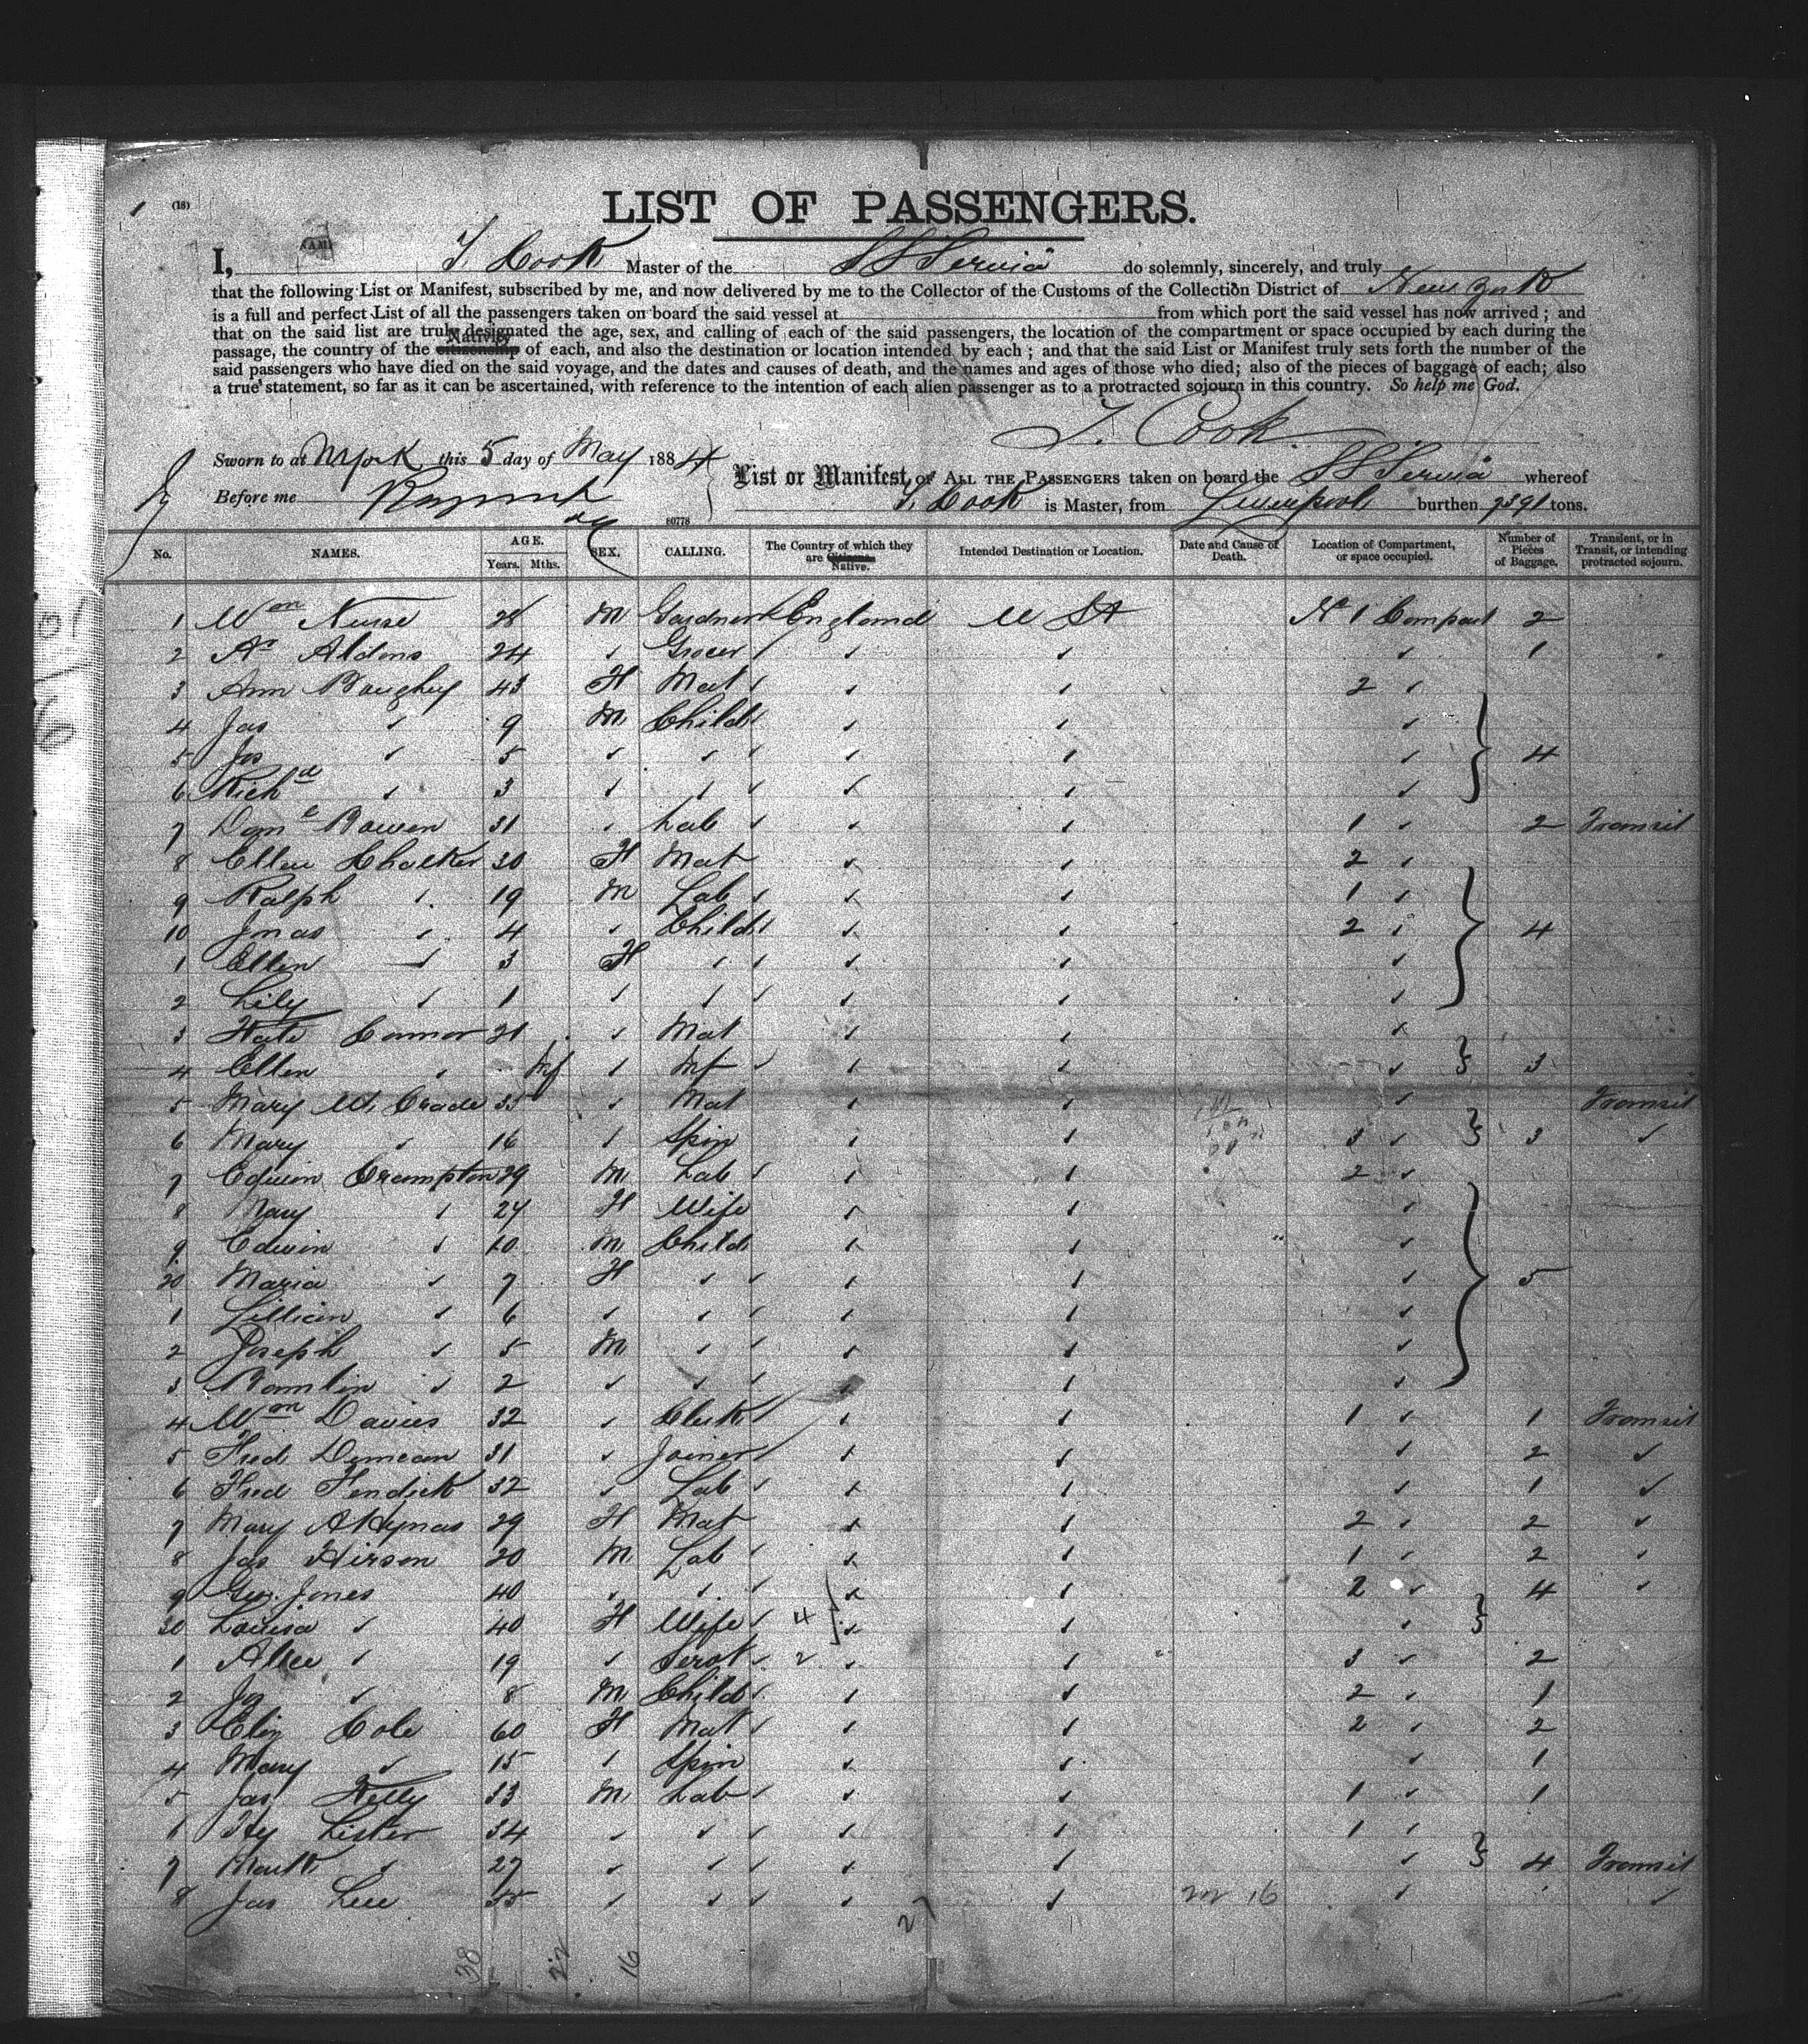 1 (18)
LIST OF PASSENGERS.
(AM)
I, T. Cook Master of the SS Servia do solemnly, sincerely, and truly
that the following List or Manifest, subscribed by me, and now delivered by me to the Collector of the Customs of the Collection District of New York
is a full and perfect List of all the passengers taken on board the said vessel at from which port the said vessel has now arrived; and
that on the said list are truly designated the age, sex, and calling of each of the said passengers, the location of the compartment or space occupied by each during the
Nativity
passage, the country of the citizenship of each, and also the destination or location intended by each; and that the said List or Manifest truly sets forth the number of the
said passengers who have died on the said voyage, and the dates and causes of death, and the names and ages of those who died; also of the pieces of baggage of each; also
a true statement, so far as it can be ascertained, with reference to the intention of each alien passenger as to a protracted sojourn in this country. So help me God.
T. Cook
Sworn to at N York this 5 day of May 1884
List or Manifest of ALL THE PASSENGERS taken on board the SS Servia whereof
Before me
T. Cook is Master, from Liverpool burthen 7391 tons.
80778
No. NAMES. AGE. Years. Mths. SEX. CALLING. The Country of which they are Citizens. Native. Intended Destination or Location. Date and Cause of Death. Location of Compartment, or space occupied. Number of Pieces of Baggage. Transient, or in Transit, or intending protracted sojourn.
1 Wm Nurse 28 M Gardner England U St No 1 Compart 2
2 Ar Aldons 24 Grocer 1
3 Ann Boughey 43 F Mat 2
4 Jas 9 M Child
5 Jos 5 4
6 Richd 3
7 Bowen 31 Lab 1 2 Transit
8 Ellen Chalker 30 F Mat 2
9 Ralph 19 M Lab 1
10 Jonas 4 Child 2 4
1 Ellen 3 F
2 Lily 1
3 Kate Connor 21 Mat
4 Ellen Inf Inf 3
5 Mary Mc Crade 35 Mat Transit
6 Mary 16 Spin 3 3
7 Edwin Crompton 29 M Lab 2
8 Mary 27 F Wife
9 Edwin 10 M Child
20 Maria 7 F 5
1 Lillian 6
2 Joseph 5 M
3 2
4 Wm Davies 32 Clerk 1 1 Transit
5 Fred Duncan 31 Joiner 2
6 Fred Fendick 32 Lab 1
7 Mary A Hynas 29 F Mat 2 2
8 Jas Hirson 20 M Lab 1 2
9 Geo. Jones 40 2 4
30 Louisa 40 F Wife 4
1 Alice 19 Servt 2 3 2
2 Jos 8 M Child 2 1
3 Eliz Cole 60 F Mat 2 2
4 Mary 15 Spin 1
5 Jas Kelly 33 M Lab 1 1
6 Hy Lister 34 1
7 27 4 Transit
8 Jas Lee 35 22 16
38 22 16